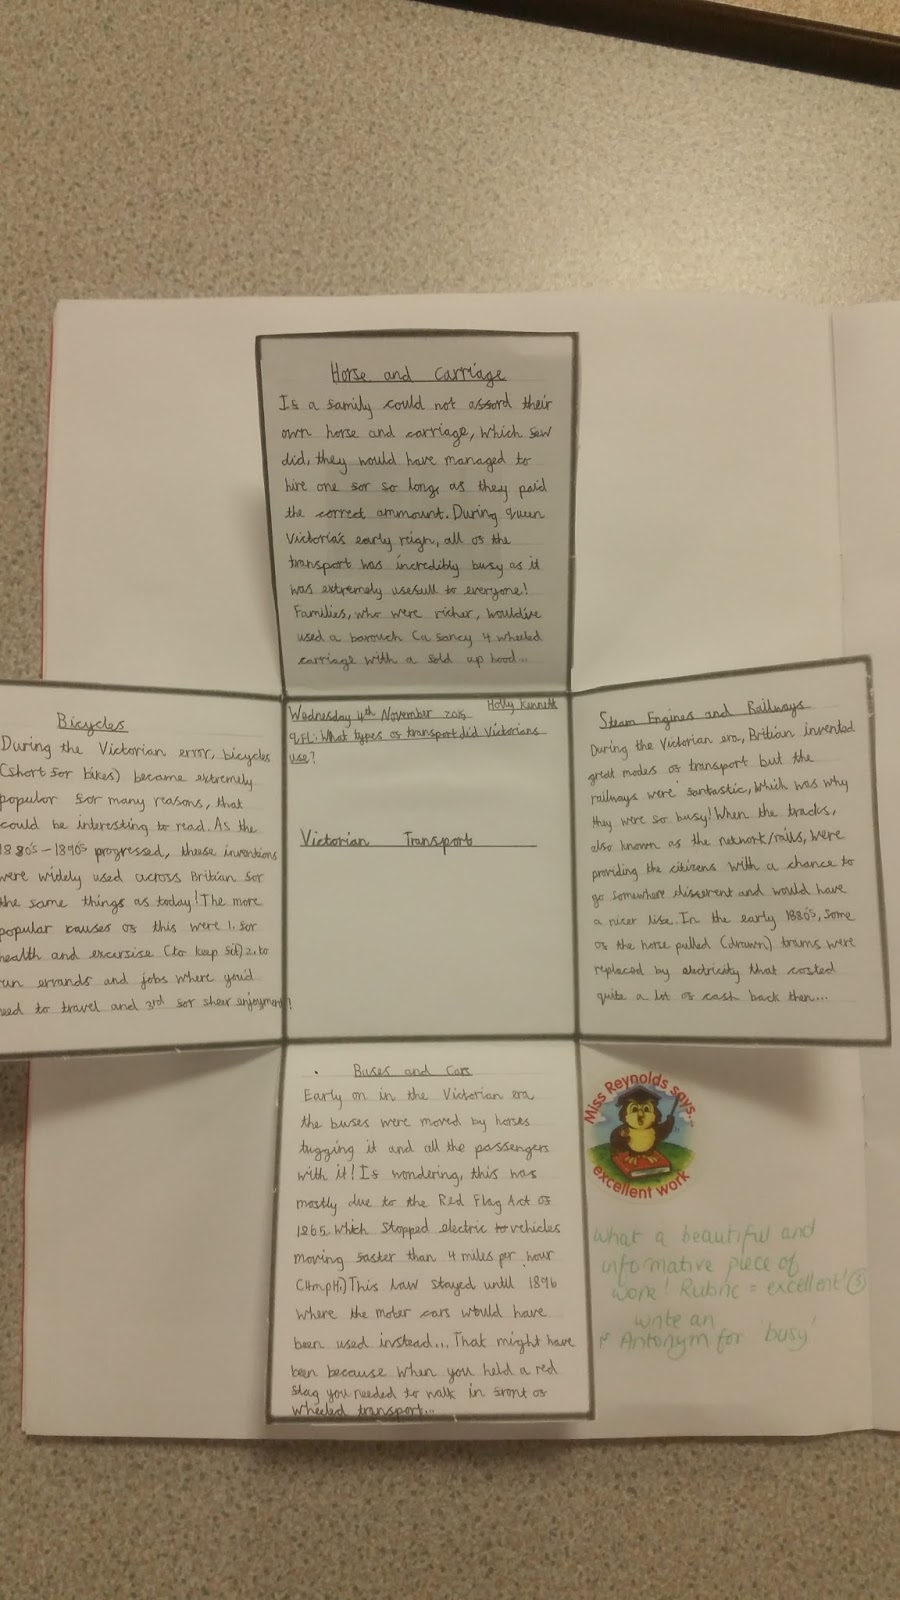 Horse and Carriage
If a family could not afford their
own horse and carriage, which few
did, they would have managed to
hire one for so long, as they paid
the correct ammount. During queen
Victoria's early reign, all of the
transport was incredibly busy as it
was extremely usefull to everyone!
Families, who were richer, would've
used a barouch (a fancy 4 wheeled
carriage with a fold up hood...
Bicycles
During the Victorian error, bicycles
(short for bikes) became extremely
popular for many reasons, that
could be interesting to read. As the
1880's - 1890's progressed, these inventions
were widely used across Britian for
the same things as today! The more
popular causes of this were 1. for
health and excursise (to keep fit) 2. to
run errands and jobs where you'd
need to travel and 3rd for shear enjoyment!
Wednesday 4th November 2015 Holly Kennett
What types of transport did Victorians
use?
Victorian Transport
Steam Engines and Railways
During the Victorian era, Britian invented
great modes of transport but the
railways were fantastic, which was why
they were so busy! When the tracks,
also known as the network/rails, were
providing the citizens with a chance to
go somewhere different and would have
a nicer life. In the early 1880's, some
of the horse pulled (drawn) trams were
replaced by electricity that costed
quite a lot of cash back then...
Buses and Cars
Early on in the Victorian era
the buses were moved by horses
tugging it and all the passengers
with it! If wondering, this was
mostly due to the Red Flag Act of
1865. Which stopped electric vehicles
moving faster than 4 miles per hour
(4mph) This law stayed until 1896
where the moter cars would have
been used instead... That might have
been because when you held a red
flag you needed to walk in front of
wheeled transport...
Miss Reynolds says...
excellent work
What a beautiful and
informative piece of
work! Rubric = excellent! (3)
write an
Antonym for 'busy'